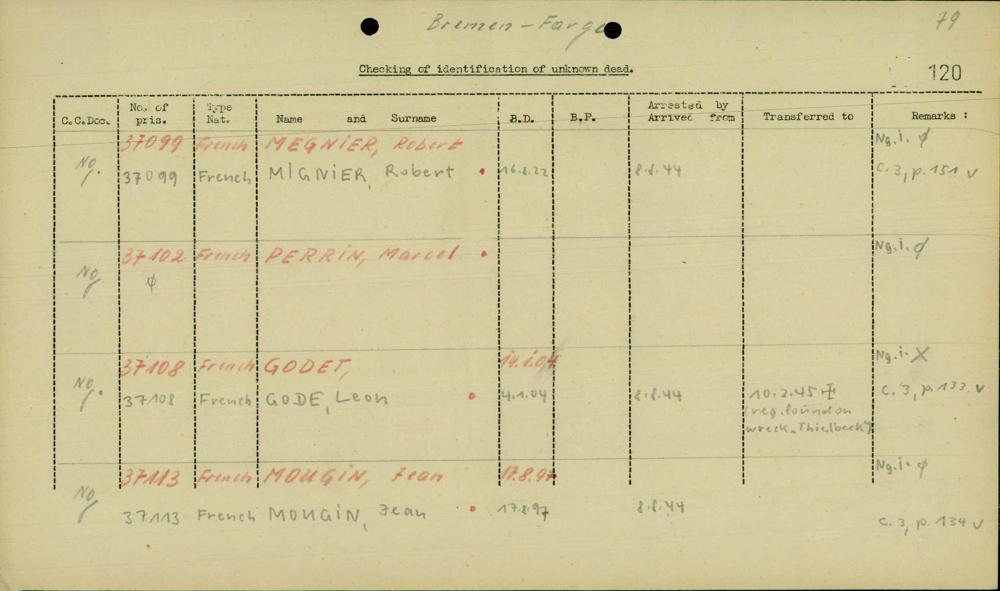 Bremen – Farge
79
Checking of identification of unknown dead.
120
C.C.Doc. No. of pris. Type Nat. Name and Surname B.D. B.P. Arrested by Arrived from Transferred to Remarks :
37099 French MEGNIER, Robert Ng. i. ϕ
Ng. 37099 French MIGNIER, Robert • 16.8.22 8.8.44 c. 3, p. 151 v
37102 French PERRIN, Marcel • Ng. i. ϕ
Ng ϕ
37108 French GODET, 14.1.04 Ng. i. X
Ng. 37108 French GODE, Leon • 4.1.04 8.8.44 10.2.45 ✠ c. 3, p. 133 v
(reg. found on
wreck „Thielbeck")
37113 French MOUGIN, Jean 17.8.97 Ng. i. ϕ
Ng 37113 French MOUGIN, Jean • 17.8.97 8.8.44
c. 3, p. 134 v